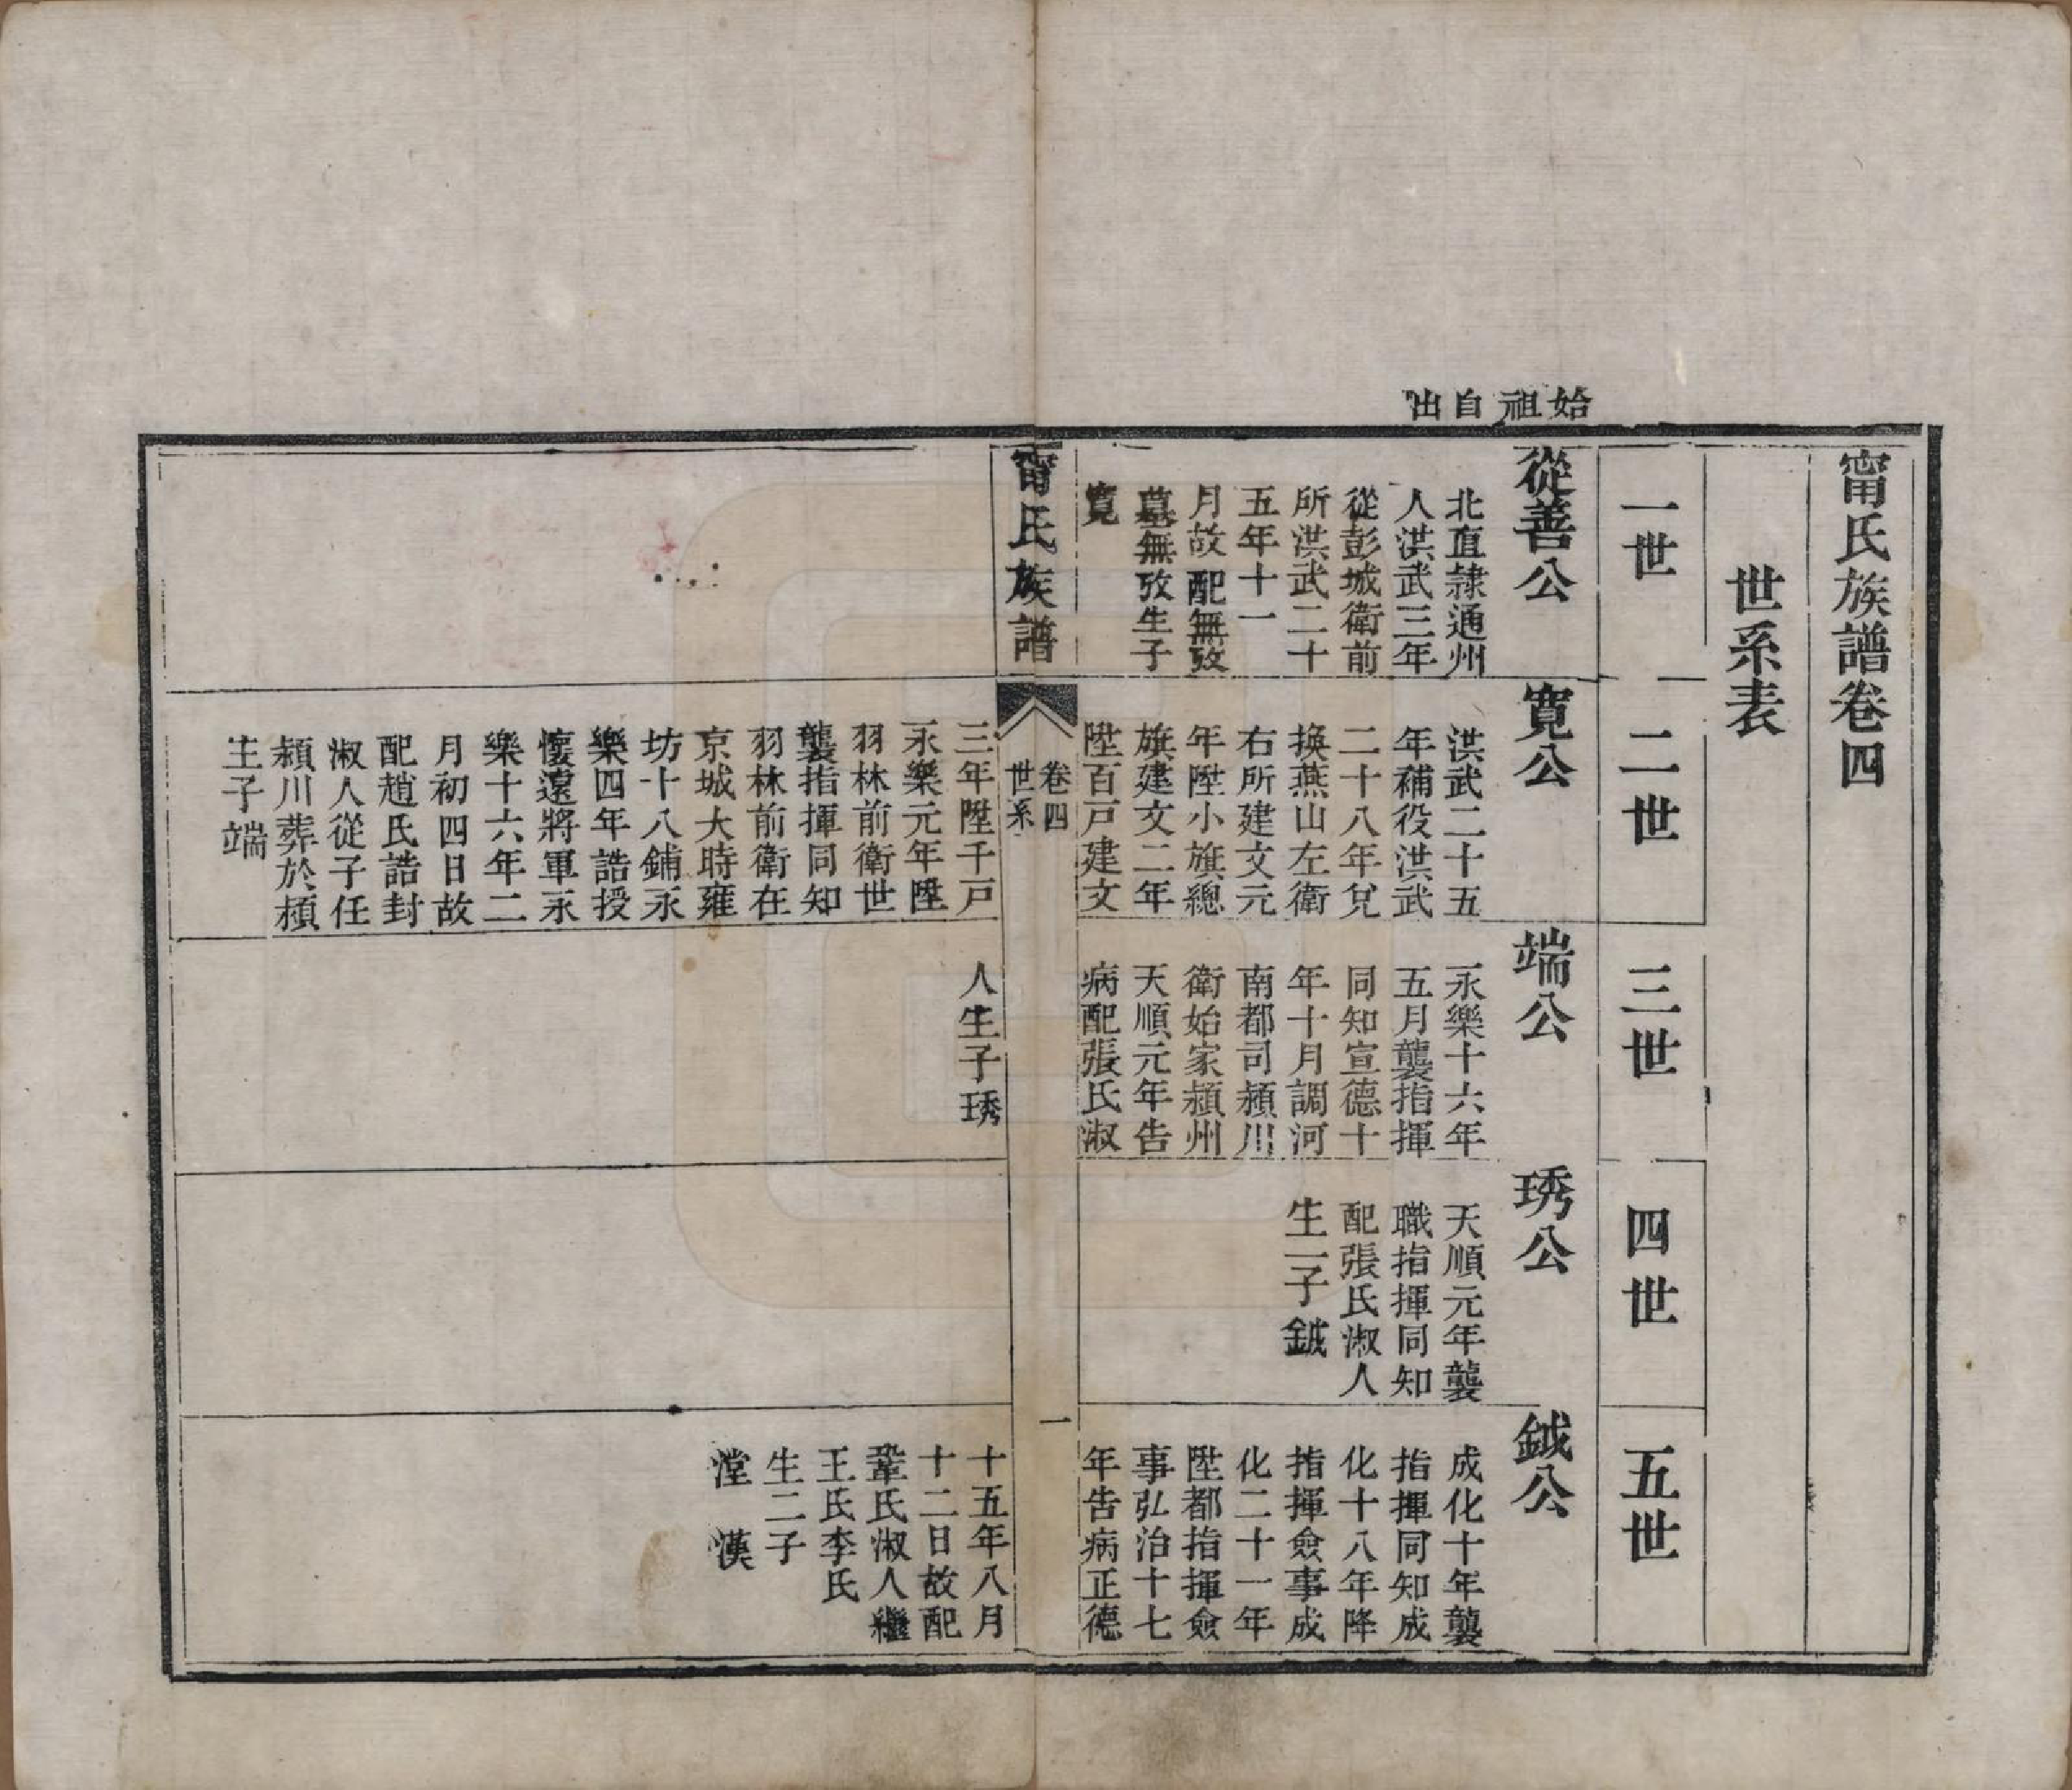 甯氏族譜卷四
世系表
一世
二世
三世
四世
五世
始祖自出
從善公
北直隷通州
人洪武三年
從彭城衛前
所洪武二十
五年十一
月故配無攷
墓無攷生子
寬
寬公
洪武二十五
年補役洪武
二十八年兌
換燕山左衛
右所建文元
年陞小旗總
旗建文二年
陞百戸建文
三年陞千戸
永樂元年陞
羽林前衛世
襲指揮同知
羽林前衛在
京城大時雍
坊十八鋪永
樂四年誥授
懷遠將軍永
樂十六年二
月初四日故
配趙氏誥封
淑人從子任
潁川葬於潁
生子端
端公
永樂十六年
五月襲指揮
同知宣德十
年十月調河
南都司潁川
衛始家潁州
天順元年告
病配張氏淑
人生子琇
琇公
天順元年襲
職指揮同知
配張氏淑人
生一子鉞
鉞公
成化十年襲
指揮同知成
化十八年降
指揮僉事成
化二十一年
陞都指揮僉
事弘治十七
年告病正德
十五年八月
十二日故配
鞏氏淑人繼
王氏李氏
生二子
瀅　漢
甯氏族譜
卷四
世系
一